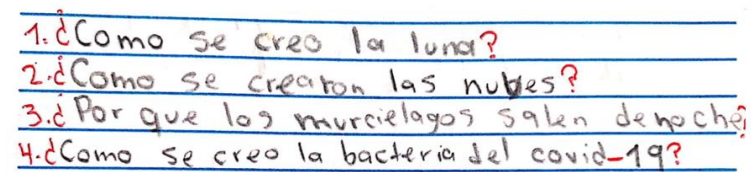 1.¿Como se creo la luna?
2.¿Como se crearon las nubes?
3.¿Por que los murcielagos salen de noche?
4.¿Como se creo la bacteria del covid-19?